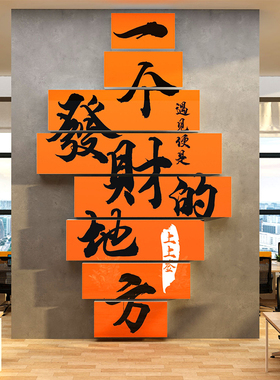 一个
發財的
地方
遇見便是
上上签